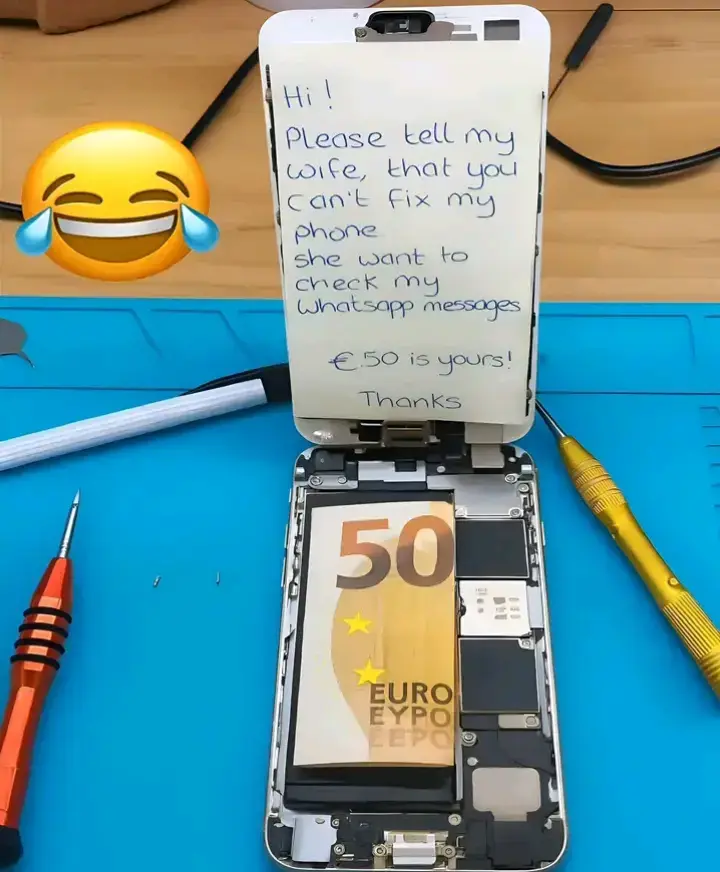 Hi !
Please tell my
wife, that you
can't fix my
phone
she want to
check my
Whatsapp messages
€50 is yours!
Thanks
50
EURO
ΕΥΡΩ
ЕВРО